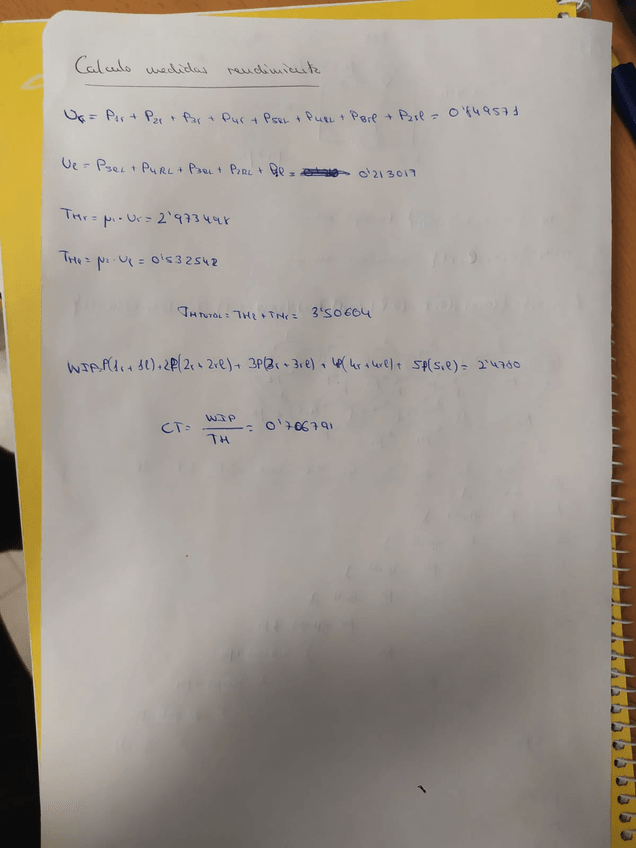 Calculo medidas rendimiento
Ur = P1r + P2r + P3r + P4r + P5RL + P4RL + P3rl + P2rl = 0'849571
Ul = P5RL + P4RL + P3RL + P2RL + Pl = 0'213017
THr = μr · Ur = 2'973498
THl = μl · Ul = 0'532542
THTOTAL = THl + THr = 3'50604
WIP = P(1r + 1l) + 2P(2r + 2rl) + 3P(3r + 3rl) + 4P(4r + 4rl) + 5P(5rl) = 2'4780
CT = WIP / TH = 0'706791